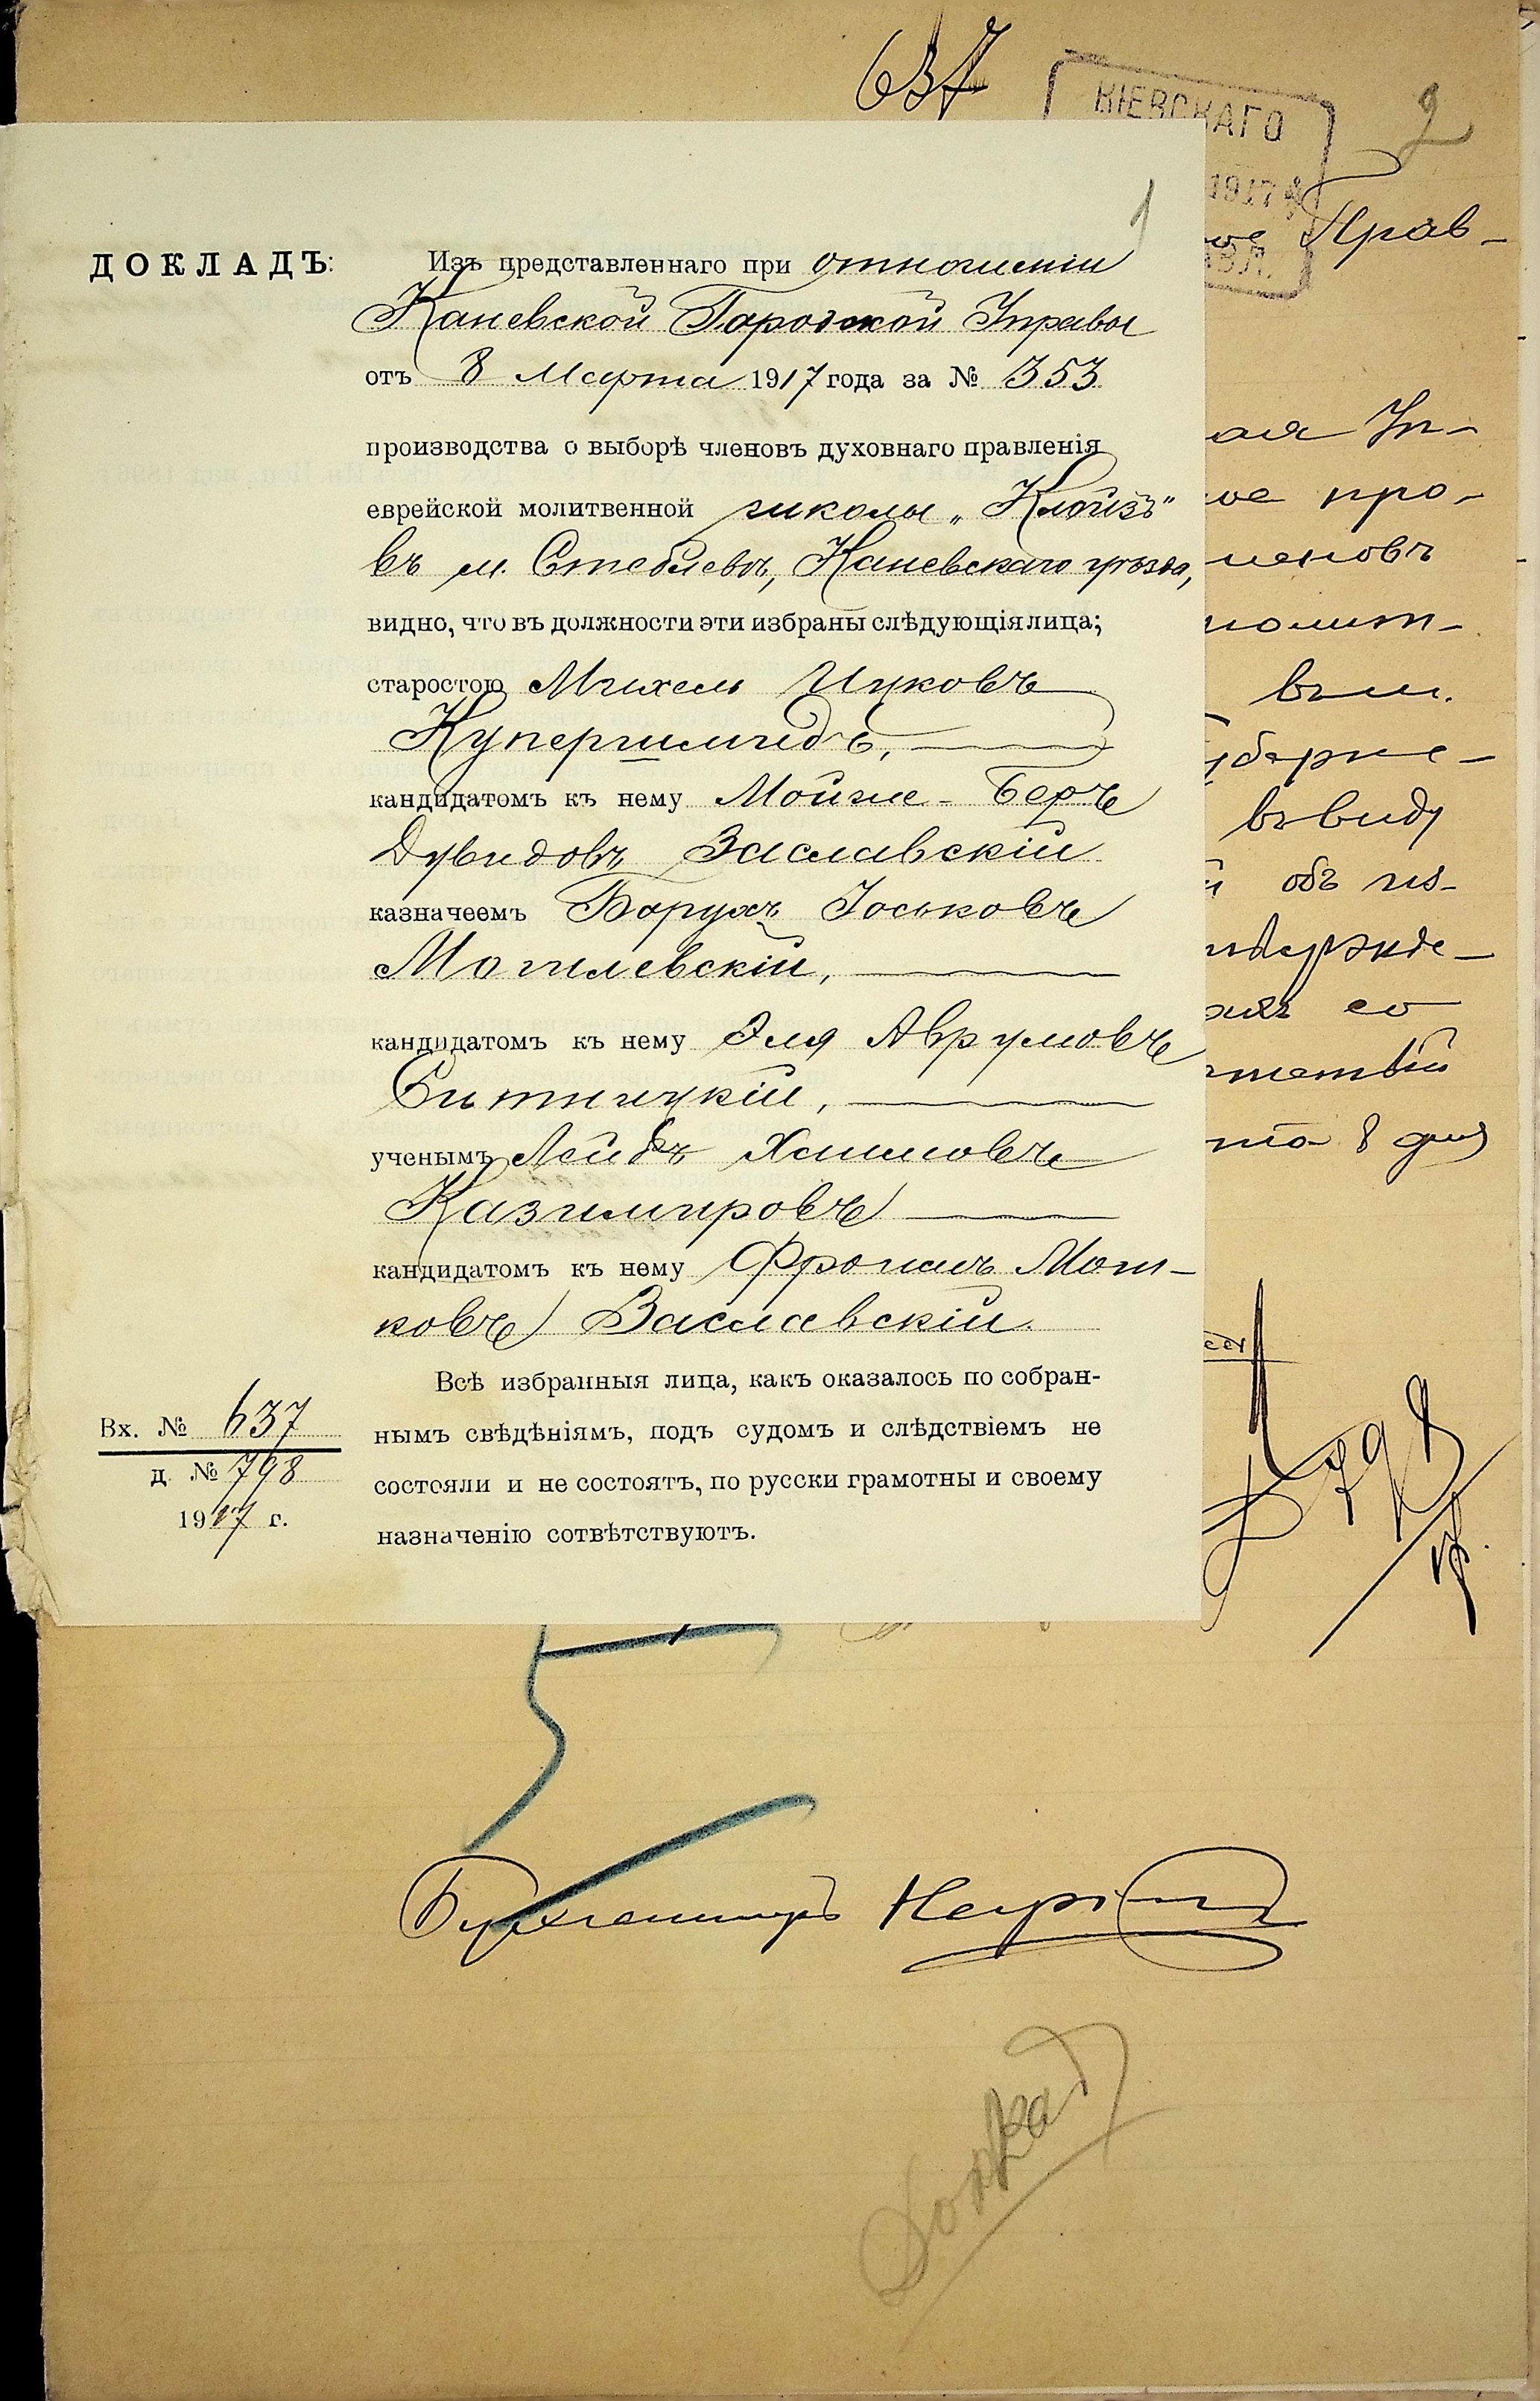 637
КІЕВСКАГО
1917
2
Прав-
1
ДОКЛАДЪ:
Изъ представленнаго при отношеніи
Каневской Городской Управы
отъ 8 Марта 1917 года за № 353
производства о выборѣ членовъ духовнаго правленія
еврейской молитвенной школы „Клойзъ“
въ м. Стеблевѣ, Каневскаго уѣзда,
видно, что въ должности эти избраны слѣдующія лица;
старостою Михель Ицковъ
Купершмидъ,
кандидатомъ къ нему Мойше-Беръ
Дувидовъ Заславскій
казначеемъ Борухъ Іоськовъ
Могилевскій,
кандидатомъ къ нему Эля Аврумовъ
Ситницкій,
ученымъ Лейбъ Хаимовъ
Казимировъ
кандидатомъ къ нему Фроимъ Мот-
ковъ Заславскій.
Всѣ избранныя лица, какъ оказалось по собран-
нымъ свѣдѣніямъ, подъ судомъ и слѣдствіемъ не
состояли и не состоятъ, по русски грамотны и своему
назначенію сотвѣтствуютъ.
Вх. № 637
д. № 798
1917 г.
ая Уп-
ое про-
леновъ
молит-
въ м.
уберне-
въ виду
объ из-
ствержде-
со
8 дня
798
17
Бухгалтеръ
Доклад